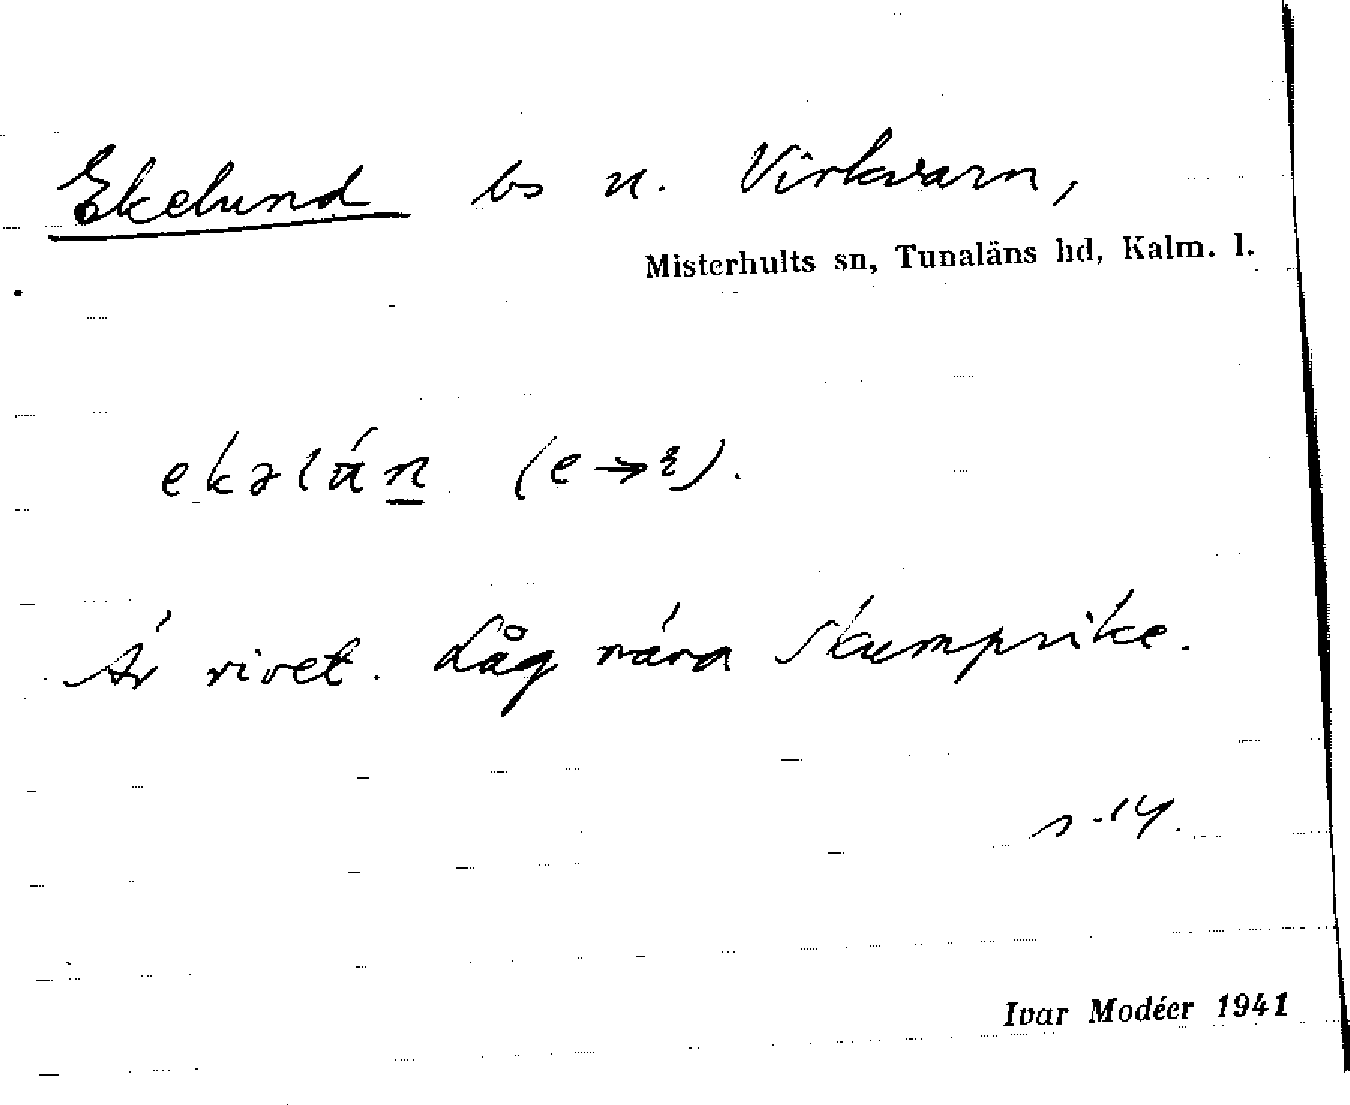 Ekelund bs u. Virkvarn,
Misterhults sn, Tunaläns hd, Kalm. l.
ekəlún (e→
Är rivet. Låg nära Skumprike.
s. 14.
Ivar Modéer 1941